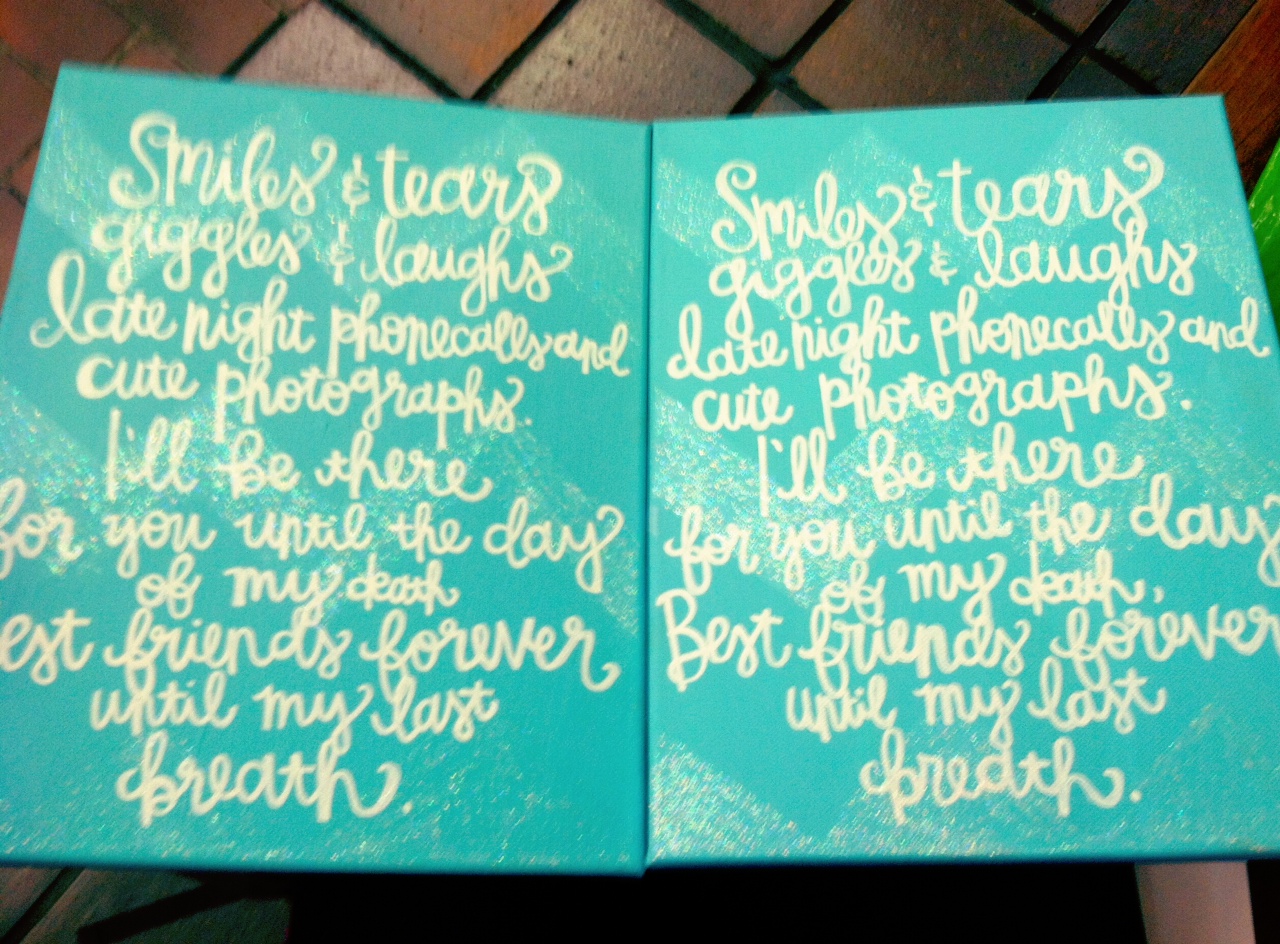 Smiles & tears
giggles & laughs
late night phonecalls and
cute photographs.
I'll be there
for you until the day
of my death
est friends forever
until my last
breath.
Smiles & tears
giggles & laughs
late night phonecalls and
cute photographs.
I'll be there
for you until the day
of my death,
Best friends forever
until my last
breath.